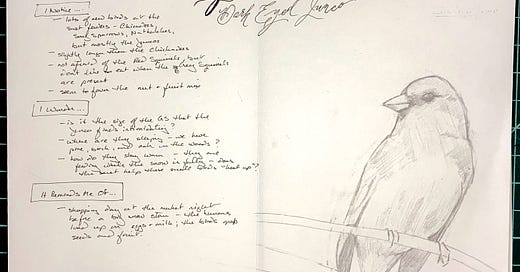 Dark Eyed Junco
I Notice...
- lots of new birds at the
suet feeders - Chickadees,
Song Sparrows, Nuthatches,
but mostly the Juncos
- slightly larger than the Chickadees
- not afraid of the Red Squirrels, but
don't like to eat when the Grey Squirrels
are present
- seem to favor the nut + fruit mix
I Wonder...
- is it the size of the GS that the
Juncos finds intimidating?
- where are they sleeping - we have
pine, birch, and oak in the woods?
- how do they stay warm - they are
feeding while the snow is falling - does
the suet help these small birds "heat up"?
It Reminds Me Of...
- shopping day at the market right
before a big snow storm - the humans
line up for eggs + milk; the birds
seeds and fruit.